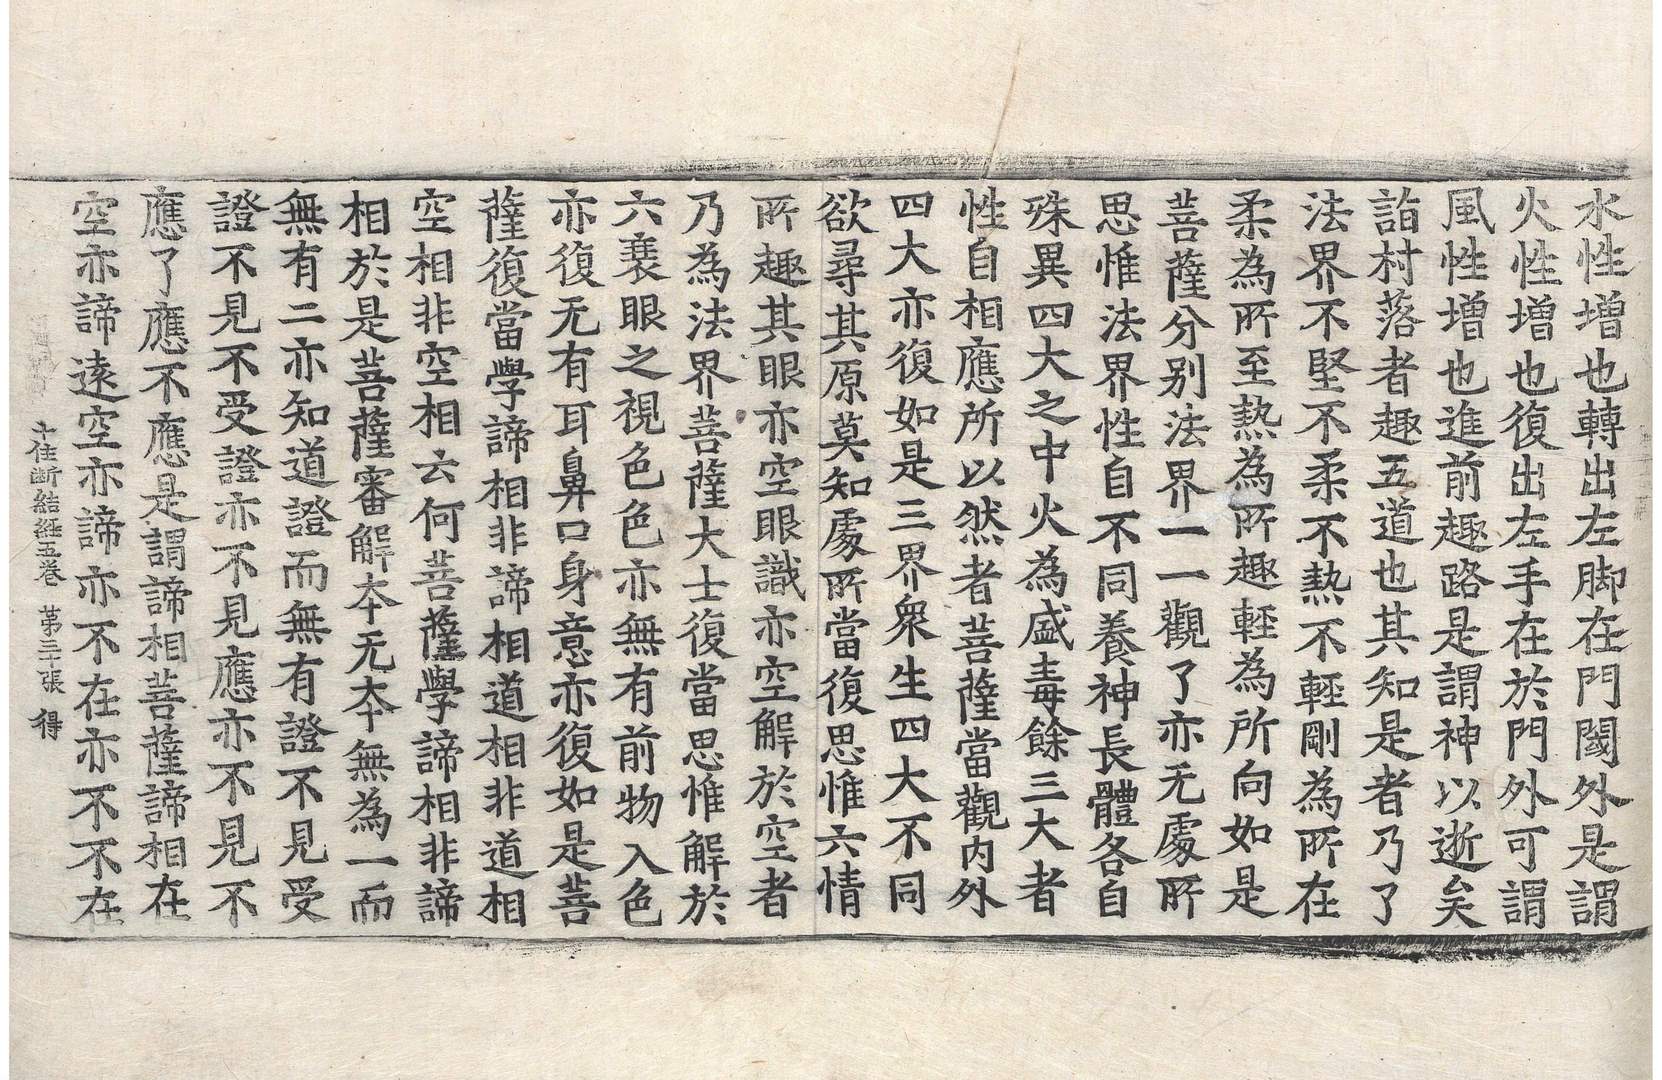 水性增也轉出左脚在門閾外是謂
火性增也復出左手在於門外可謂
風性增也進前趣路是謂神以逝矣
詣村落者趣五道也其知是者乃了
法界不堅不柔不熱不輕剛為所在
柔為所至熱為所趣輕為所向如是
菩薩分别法界一一觀了亦无處所
思惟法界性自不同養神長體各自
殊異四大之中火為盛毒餘三大者
性自相應所以然者菩薩當觀內外
四大亦復如是三界衆生四大不同
欲尋其原莫知處所當復思惟六情
所趣其眼亦空眼識亦空解於空者
乃為法界菩薩大士復當思惟解於
六衰眼之視色色亦無有前物入色
亦復无有耳鼻口身意亦復如是菩
薩復當學諦相非諦相道相非道相
空相非空相云何菩薩學諦相非諦
相於是菩薩審解本无本無為一而
無有二亦知道證而無有證不見受
證不見不受證亦不見應亦不見不
應了應不應是謂諦相菩薩諦相在
空亦諦遠空亦諦亦不在亦不不在
十住断結経五卷 苐三十張 得